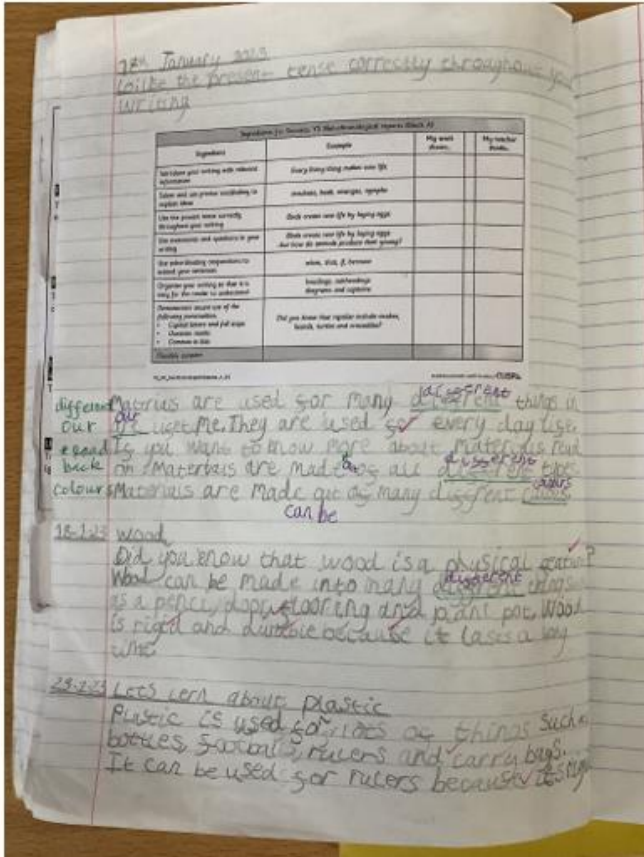 January 2023
the present tense correctly throughout
writing
Ingredients for Success Y3 Non-chronological reports (Block A)
Ingredient
Example
My work shows..
My teacher thinks..
information
Every living thing makes new life
explain ideas
Use the present tense correctly throughout your writing
Birds create new life by laying eggs
Use statements and questions in your writing
Birds create new life by laying eggs
but how do animals produce their young?
Use subordinating conjunctions to extend your sentences
when, that, if, because
Organise your writing so that it is easy for the reader to understand
headings, subheadings
diagrams and captions
Demonstrate secure use of the following punctuation:
• Capital letters and full stops
• Question marks
• Commas in lists
Did you know that reptiles include snakes, lizards, turtles and crocodiles?
CUSP
different
our
reread
back
colours
different
Materials are used for many things in
our
They are used for every day use.
If you want to know more about materials read
different
on. Materials are made of all types
colours
Materials are made out of many different
can be
18-1-23 Wood
Did you know that wood is a physical
different
Wood can be made into many
as a pencil, door, flooring and plant pot. Wood
is rigid and durable because it lasts a long
time
23-1-23 Lets lern about plastic
Plastic is used for lots of things such
bottles, rulers and carry bags.
It can be used for rulers because